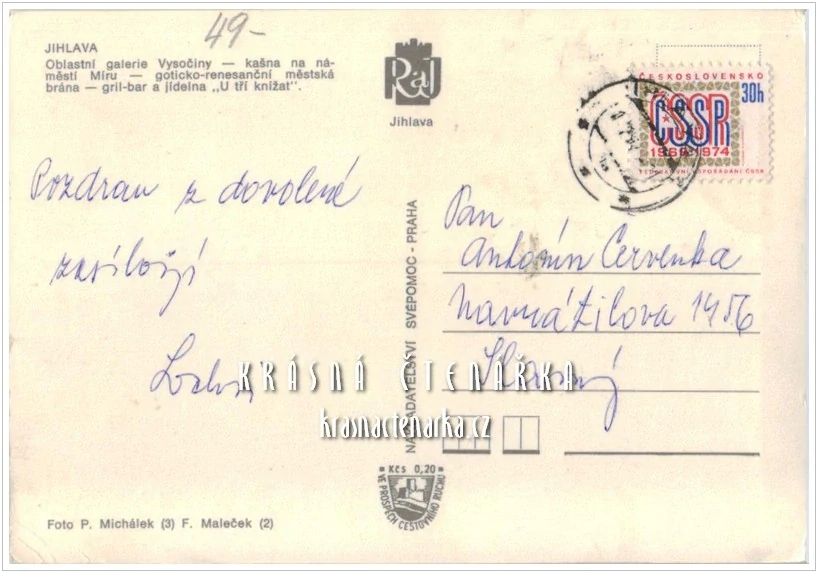 49-
JIHLAVA
Oblastní galerie Vysočiny — kašna na ná-
městí Míru — goticko-renesanční městská
brána — gril-bar a jídelna „U tří knížat".
RaJ
Jihlava
ČESKOSLOVENSKO
30h
ČSSR
1969 1974
FEDERATIVNÍ USPOŘÁDÁNÍ ČSSR
Pozdrav z dovolené
zasílají
Pan
Antonín Červenka
Navrátilova 1456
Slavný
NAKLADATELSTVÍ SVÉPOMOC - PRAHA
KRÁSNÁ ČTENÁŘKA
krasnactenarka.cz
Kčs 0,20
VE PROSPĚCH CESTOVNÍHO RUCHU
Foto P. Michálek (3) F. Maleček (2)